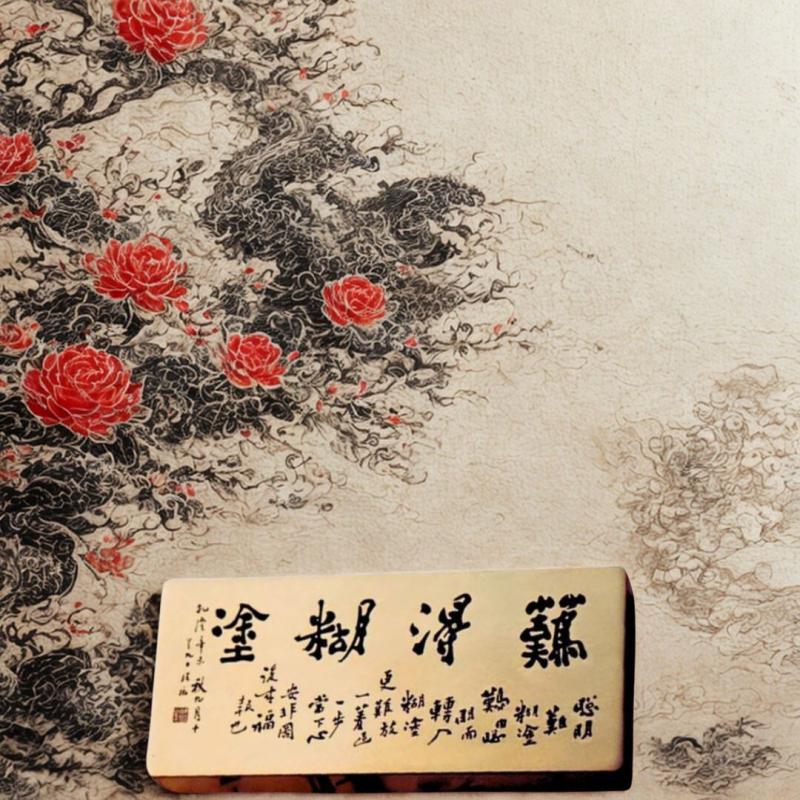 難得糊塗
聰明
難
糊塗
難由聰
明而
轉入
糊塗
更難放
一着退
一步
當下心
安非圖
後來福
報也
乾隆辛未
秋九月十